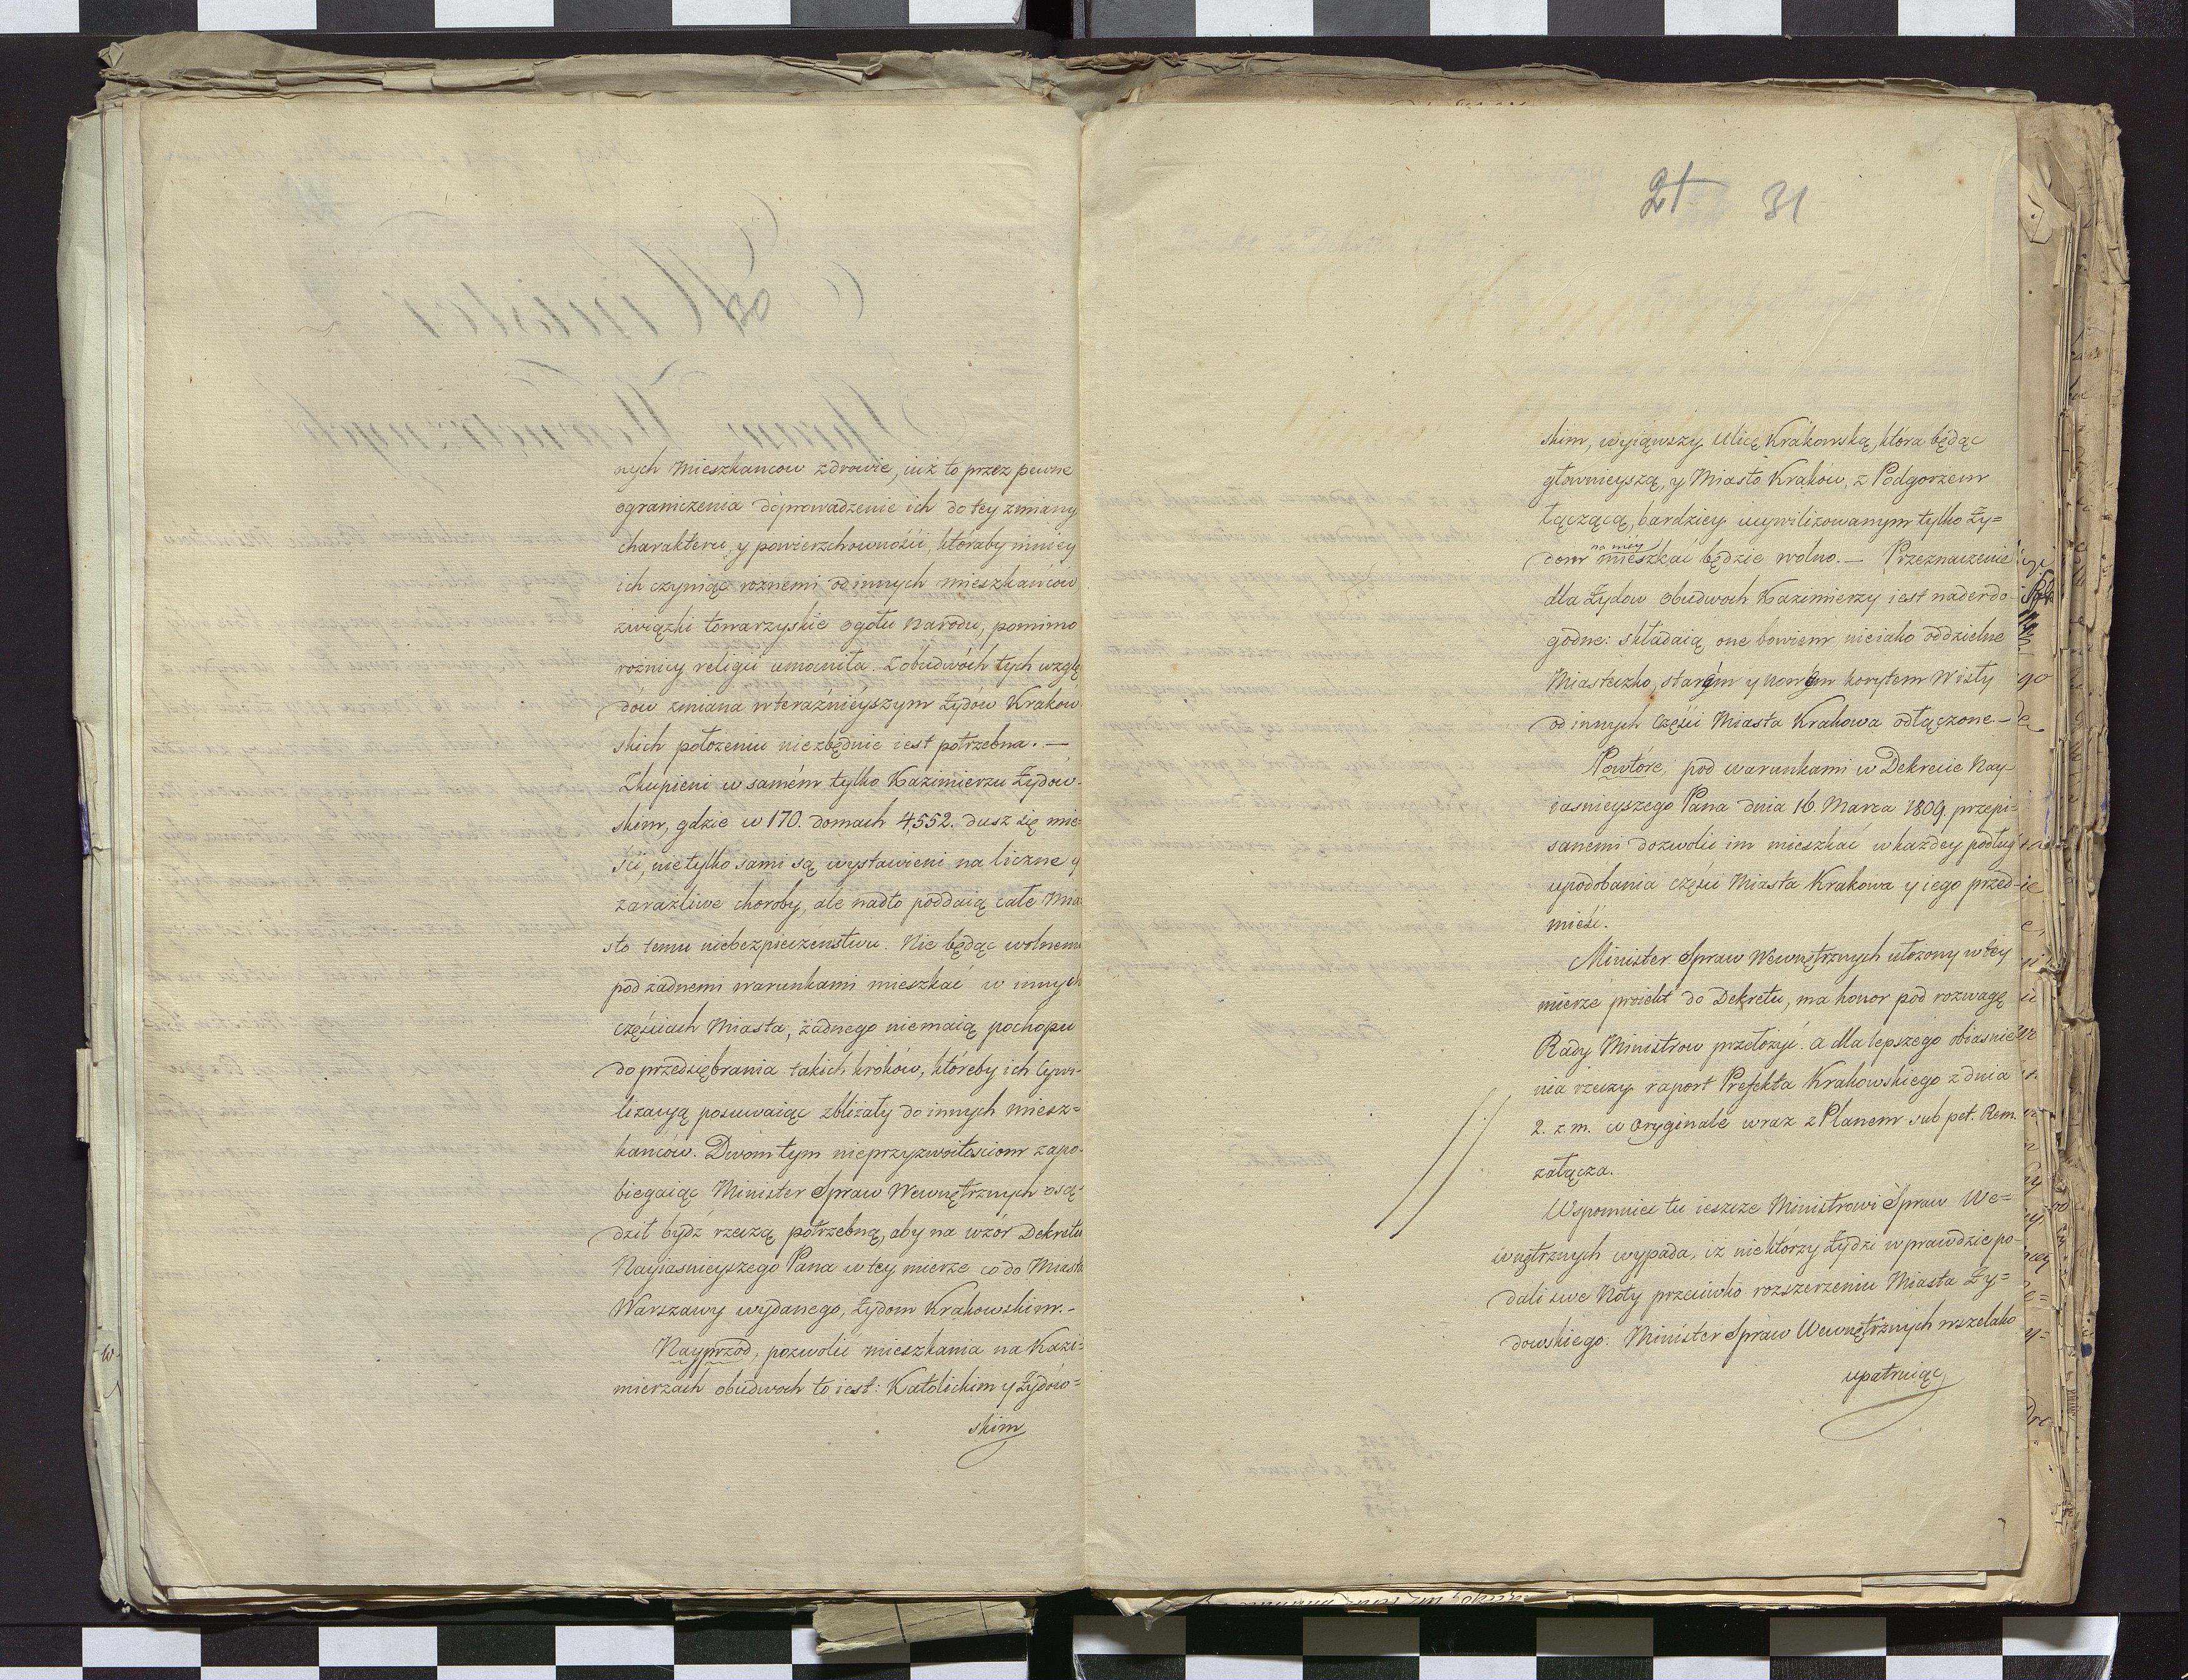 nych Mieszkancow zdrowie, iuż to przez pewne
ograniczenia doprowadzenie ich do tey zmiany
charakteru, y powierzchowności, któraby mniey
ich czyniąc roznemi od innych mieszkańców
związki towarzyskie ogołu Narodu, pomimo
rożnicy religii umocniła. Z obudwóch tych wzglę
dów zmiana w teraźnieyszym Żydów Krakow
skich położeniu niezbędnie iest potrzebna. —
Skupieni w samém tylko Kazimierzu Żydow-
skim, gdzie w 170. domach 4,552. dusz się mie-
ści, nietylko sami są wystawieni na liczne y
zaraźliwe choroby, ale nadto poddaią całe Mia-
sto temu niebezpieczeństwu. Nie będąc wolnemi
pod żadnemi warunkami mieszkać w innych
częściach Miasta, żadnego niemaią pochopu
do przedsiębrania takich kroków, któreby ich Cywi-
lizacyą posuwaiąc zbliżały do innych miesz=
kańców. Dwom tym nieprzyzwoitosciom zapo-
biegaiąc Minister Spraw Wewnętrznych osą-
dził bydź rzeczą potrzebną, aby na wzór Dekretu
Nayiasnieyszego Pana w tey mierze co do Miasta
Warszawy wydanego, Żydom Krakowskim. -
Nayprzod, pozwolić mieszkania na Kazi=
mierzach obudwoch to iest: Katolickim y Żydow=
skim
21 31
skim, wyiąwszy Ulicę Krakowską, która będąc
głownieyszą, y Miasto Kraków, z Podgorzem
łączącą, bardziey ucywilizowanym tylko Ży=
na niey
dom mieszkać będzie wolno. — Przeznaczenie
dla Żydow obudwoch Kazimierzy iest nader do-
godne: składaią one bowiem nieiako oddzielne
Miasteczko, starém y nowém korytem Wisły
od innych Części Miasta Krakowa odłączone. —
Powtóre, pod warunkami w Dekrecie Nay-
iasnieyszego Pana dnia 16. Marca 1809. przepi=
sanemi dozwolić im mieszkać w każdey podług
upodobania części Miasta Krakowa y iego przed-
mieść.
Minister Spraw Wewnętrznych ułożony w tey
mierze proiekt do Dekretu, ma honor pod rozwagę
Rady Ministrow przełożyć. a dla lepszego obiasnie
nia rzeczy raport Prefekta Krakowskiego z dnia
2. z. m. w Oryginale wraz z Planem sub pet. Rem.
załącza.
Wspomnieć tu ieszcze Ministrowi Spraw We=
wnętrznych wypada, iż niektórzy Żydzi wprawdzie po-
dali swe Noty przeciwko rozszerzeniu Miasta Ży=
dowskiego. Minister Spraw Wewnętrznych wszelako
upatruiąc